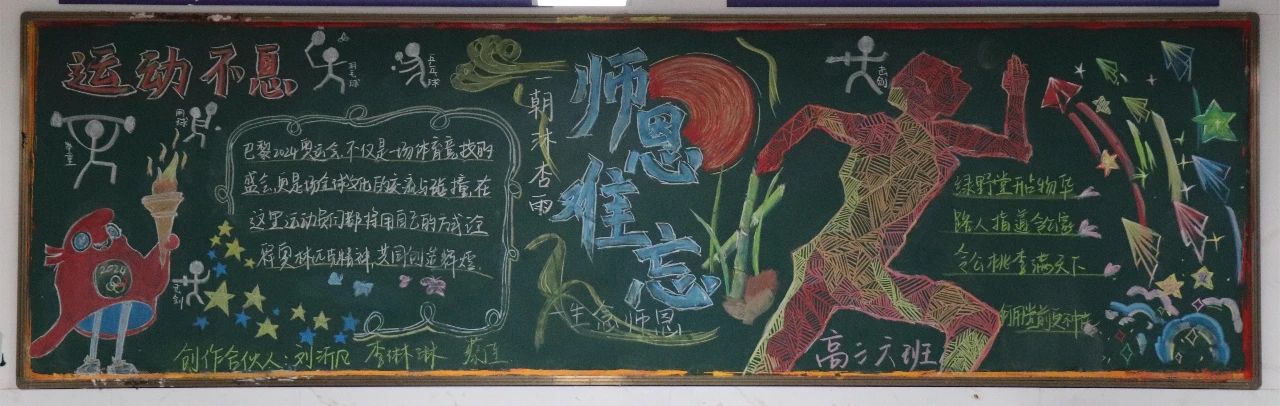 运动不息
羽毛球
乒乓球
网球
举重
巴黎2024奥运会,不仅是一场体育竞技的
盛会,更是场全球文化的交流与碰撞,在
这里运动员们都将用自己的方式诠
释奥林匹克精神,共同创造辉煌.
2024
击剑
创作合伙人:刘沂凡 李琳琳
一朝沐杏雨
师恩难忘
一生念师恩
击剑
绿野堂开占物华
路人指道令公家
令公桃李满天下
何用堂前更种花
高三六班